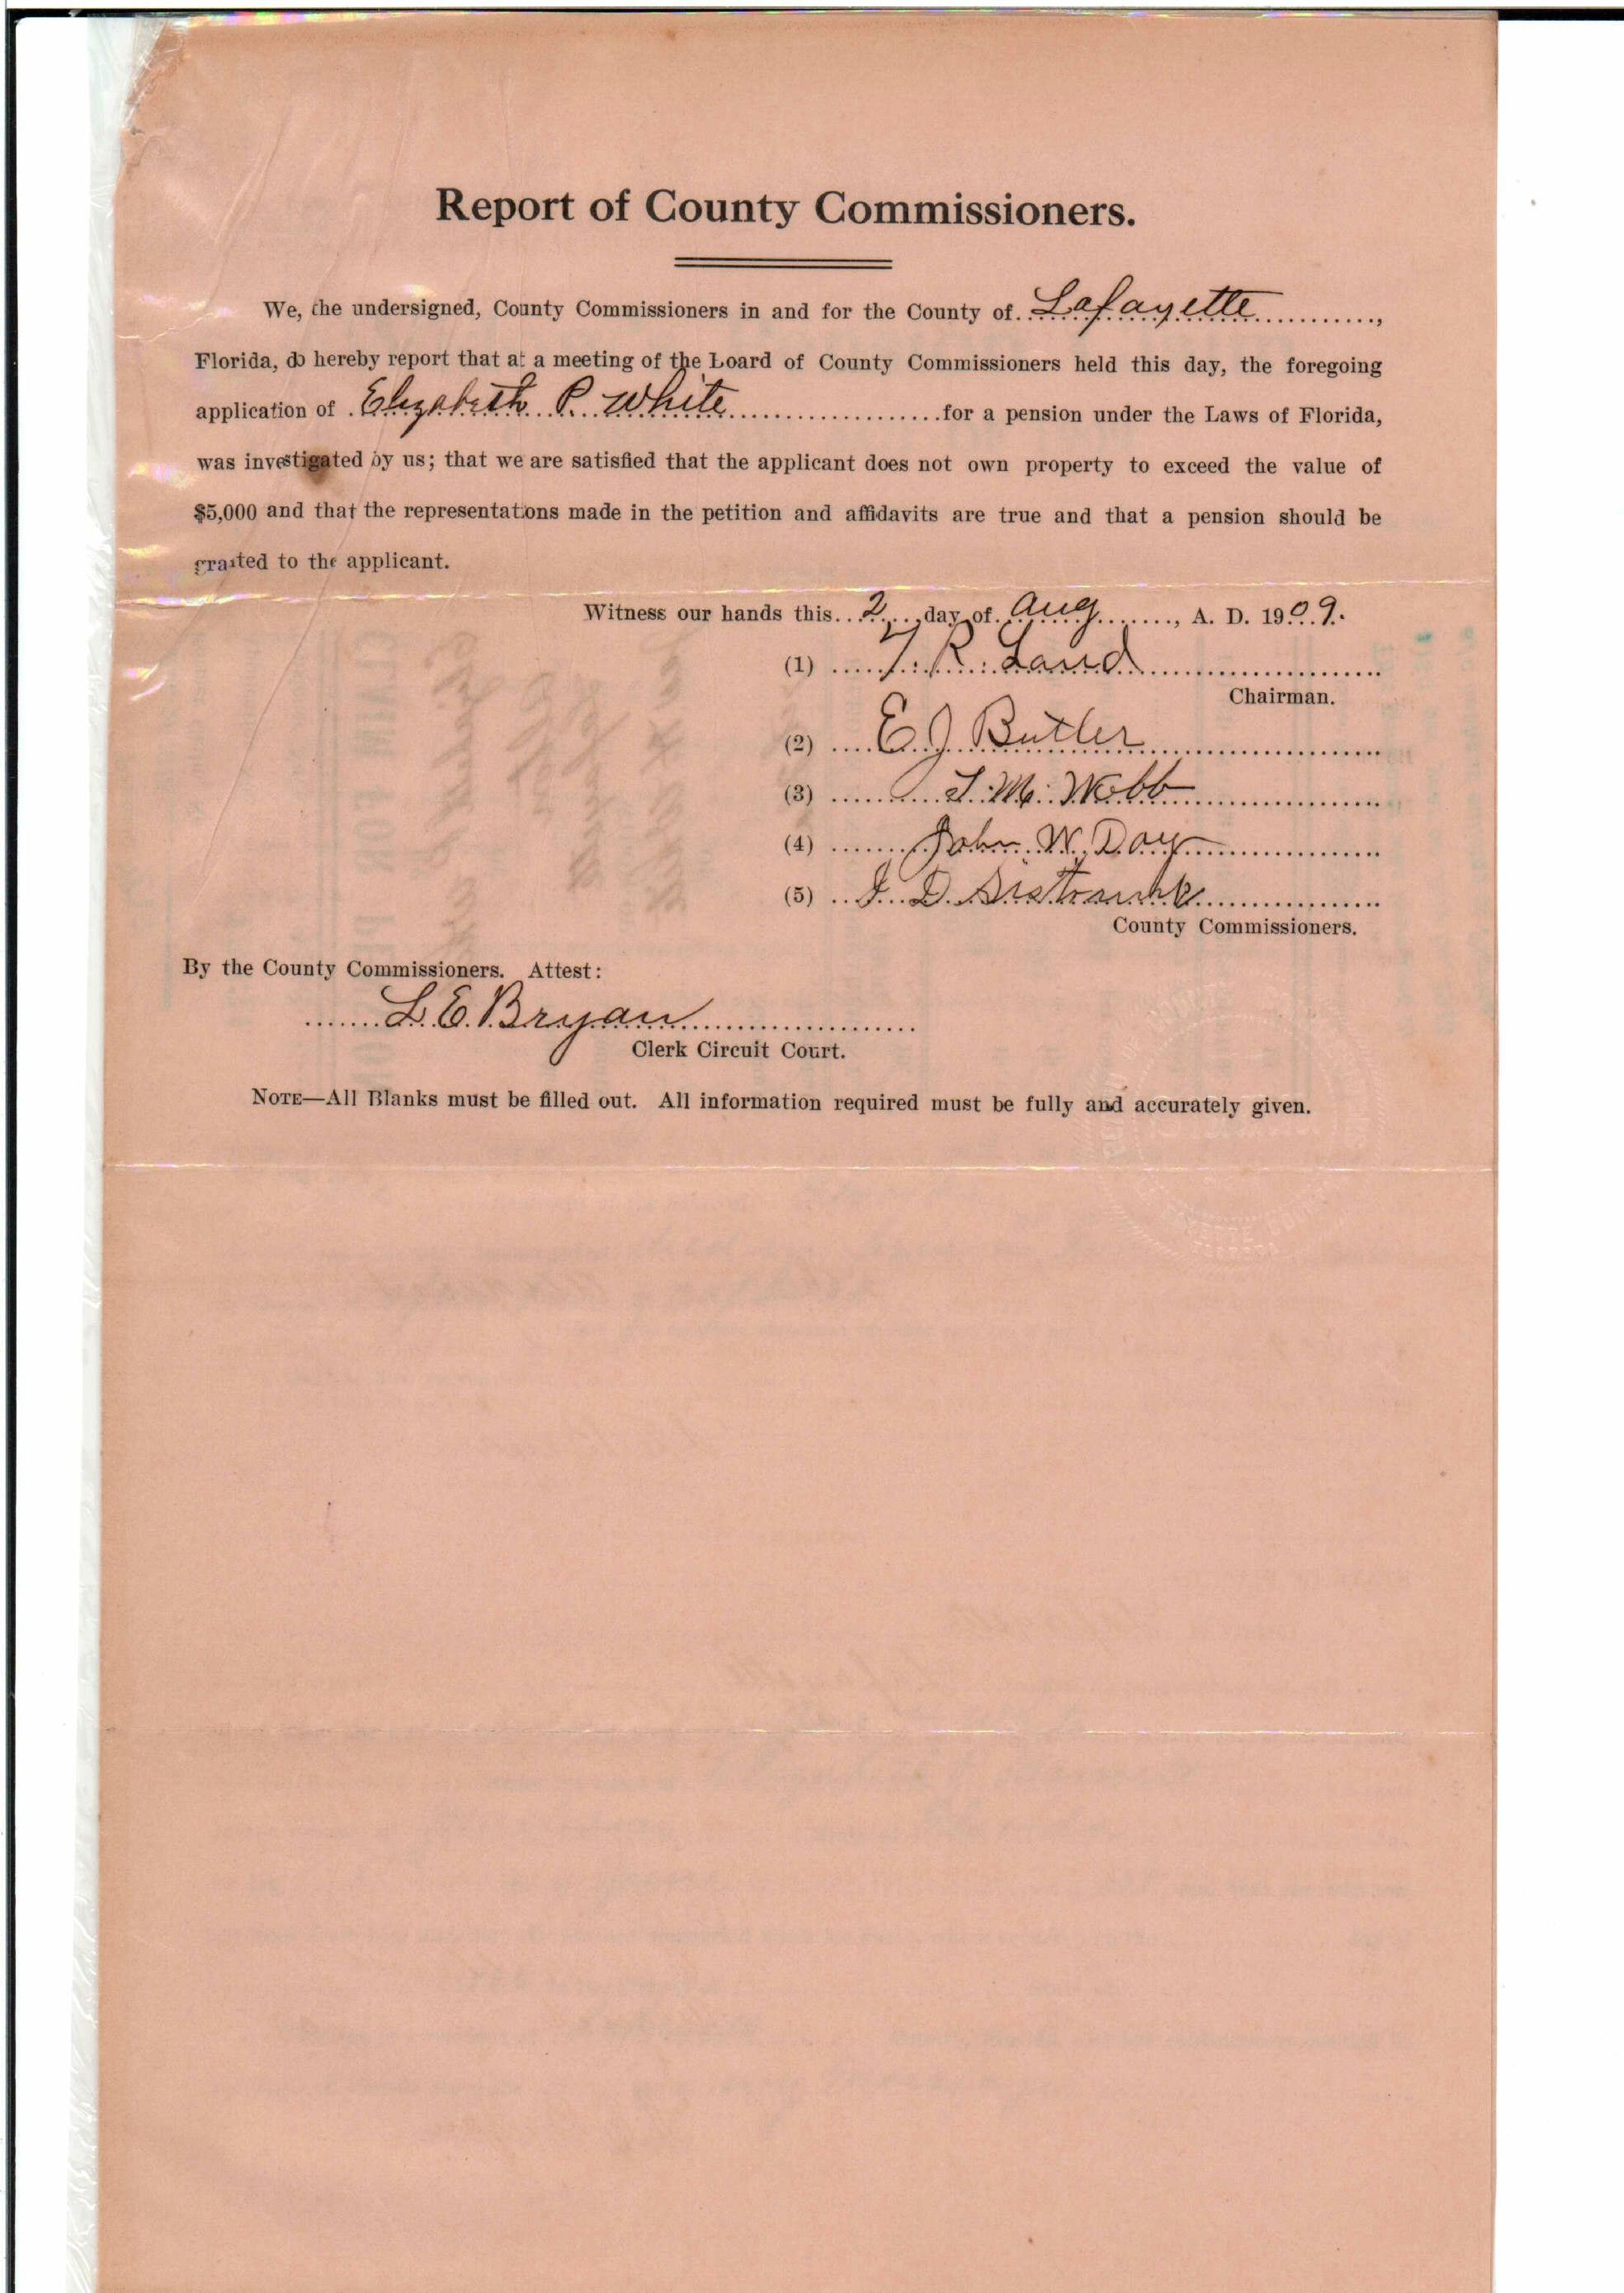 Report of County Commissioners.
We, the undersigned, County Commissioners in and for the County of Lafayette,
Florida, do hereby report that at a meeting of the Board of County Commissioners held this day, the foregoing
application of Elizabeth P. White for a pension under the Laws of Florida,
was investigated by us; that we are satisfied that the applicant does not own property to exceed the value of
$5,000 and that the representations made in the petition and affidavits are true and that a pension should be
granted to the applicant.
Witness our hands this 2 day of Aug, A. D. 1909.
(1) T. R. Land
Chairman.
(2) E J Butler
(3) Webb
(4) John W. Day
(5) D
County Commissioners.
By the County Commissioners. Attest:
L. E. Bryan
Clerk Circuit Court.
NOTE—All Blanks must be filled out. All information required must be fully and accurately given.